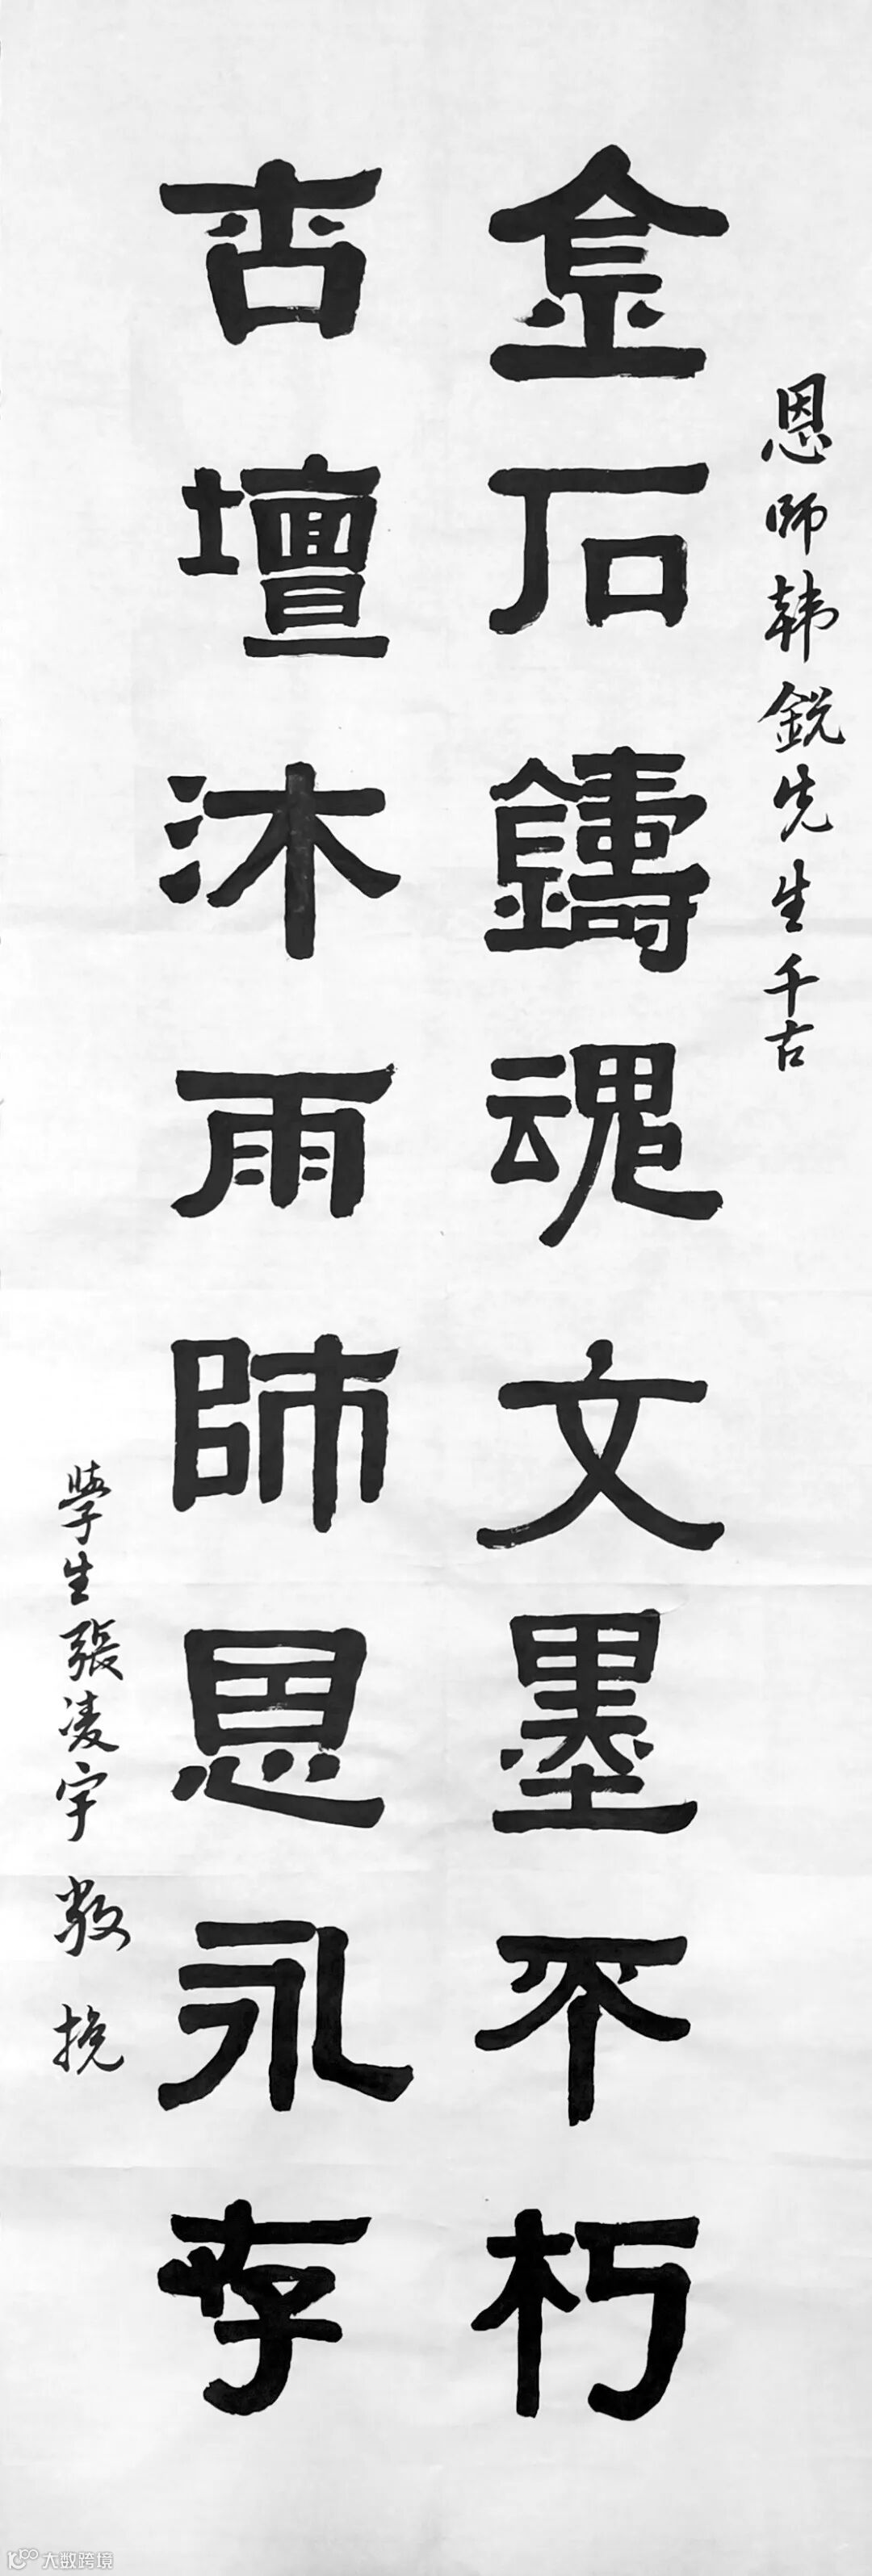 恩師韩鋭先生千古
金石鑄魂文墨不朽
杏壇沐雨師恩永存
學生張凌宇敬挽
大数跨境